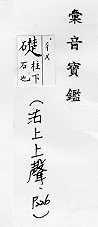 彙音寶鑑
ㄔㄨˇ
礎 柱下
石也
(沽上上聲, P.206)